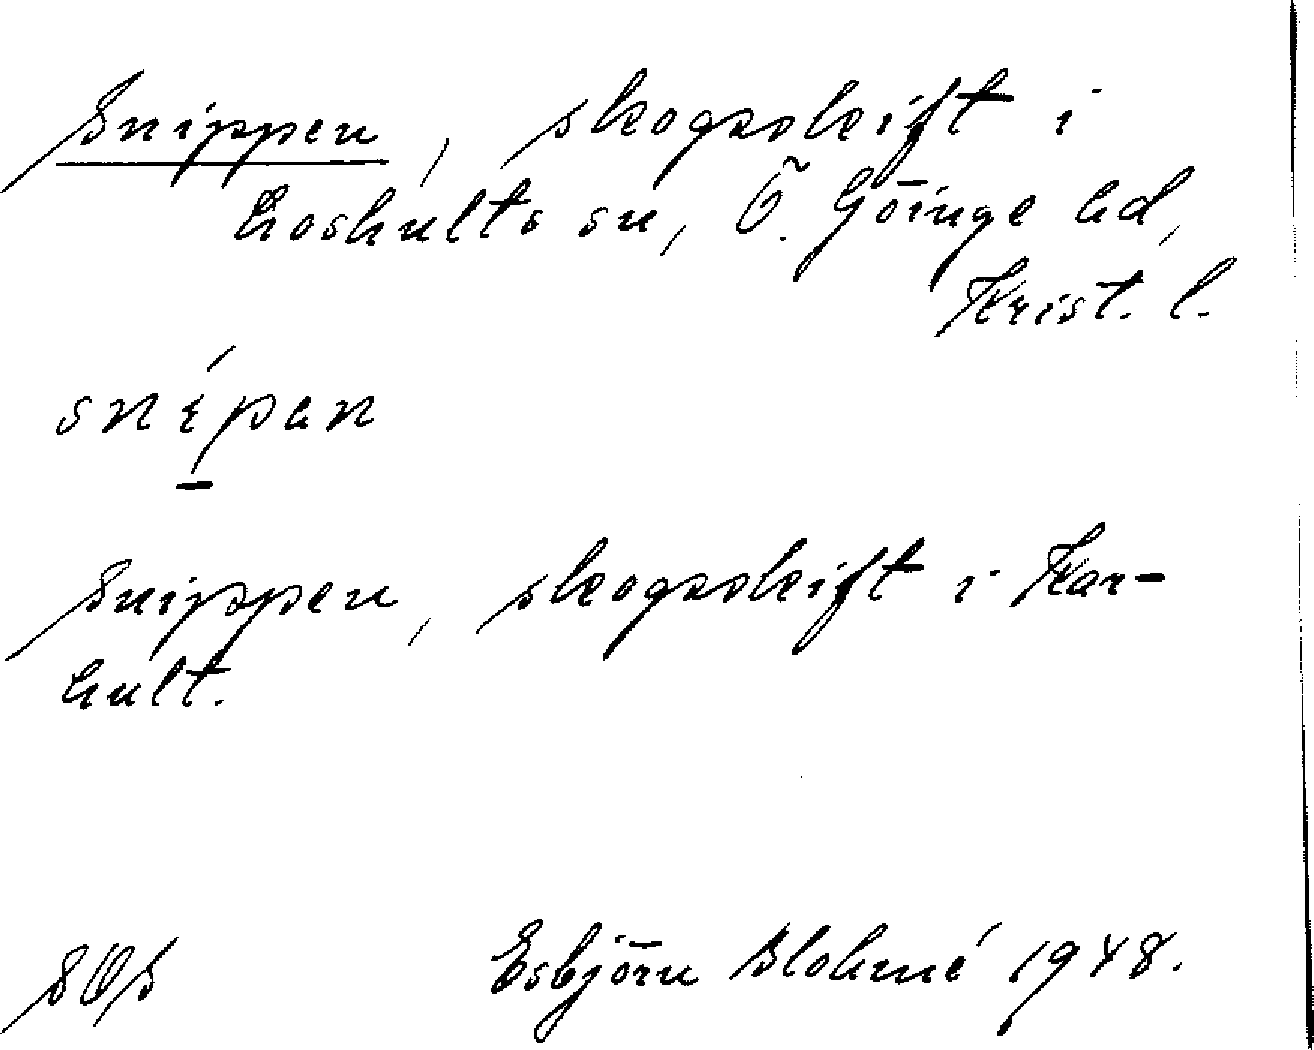 Snippen, skogsskift i
Loshults sn, Ö. Göinge hd,
Krist. l.
snípan
Snippen, skogsskift i Kar-
hult.
SOS
Esbjörn Blohmé 1948.